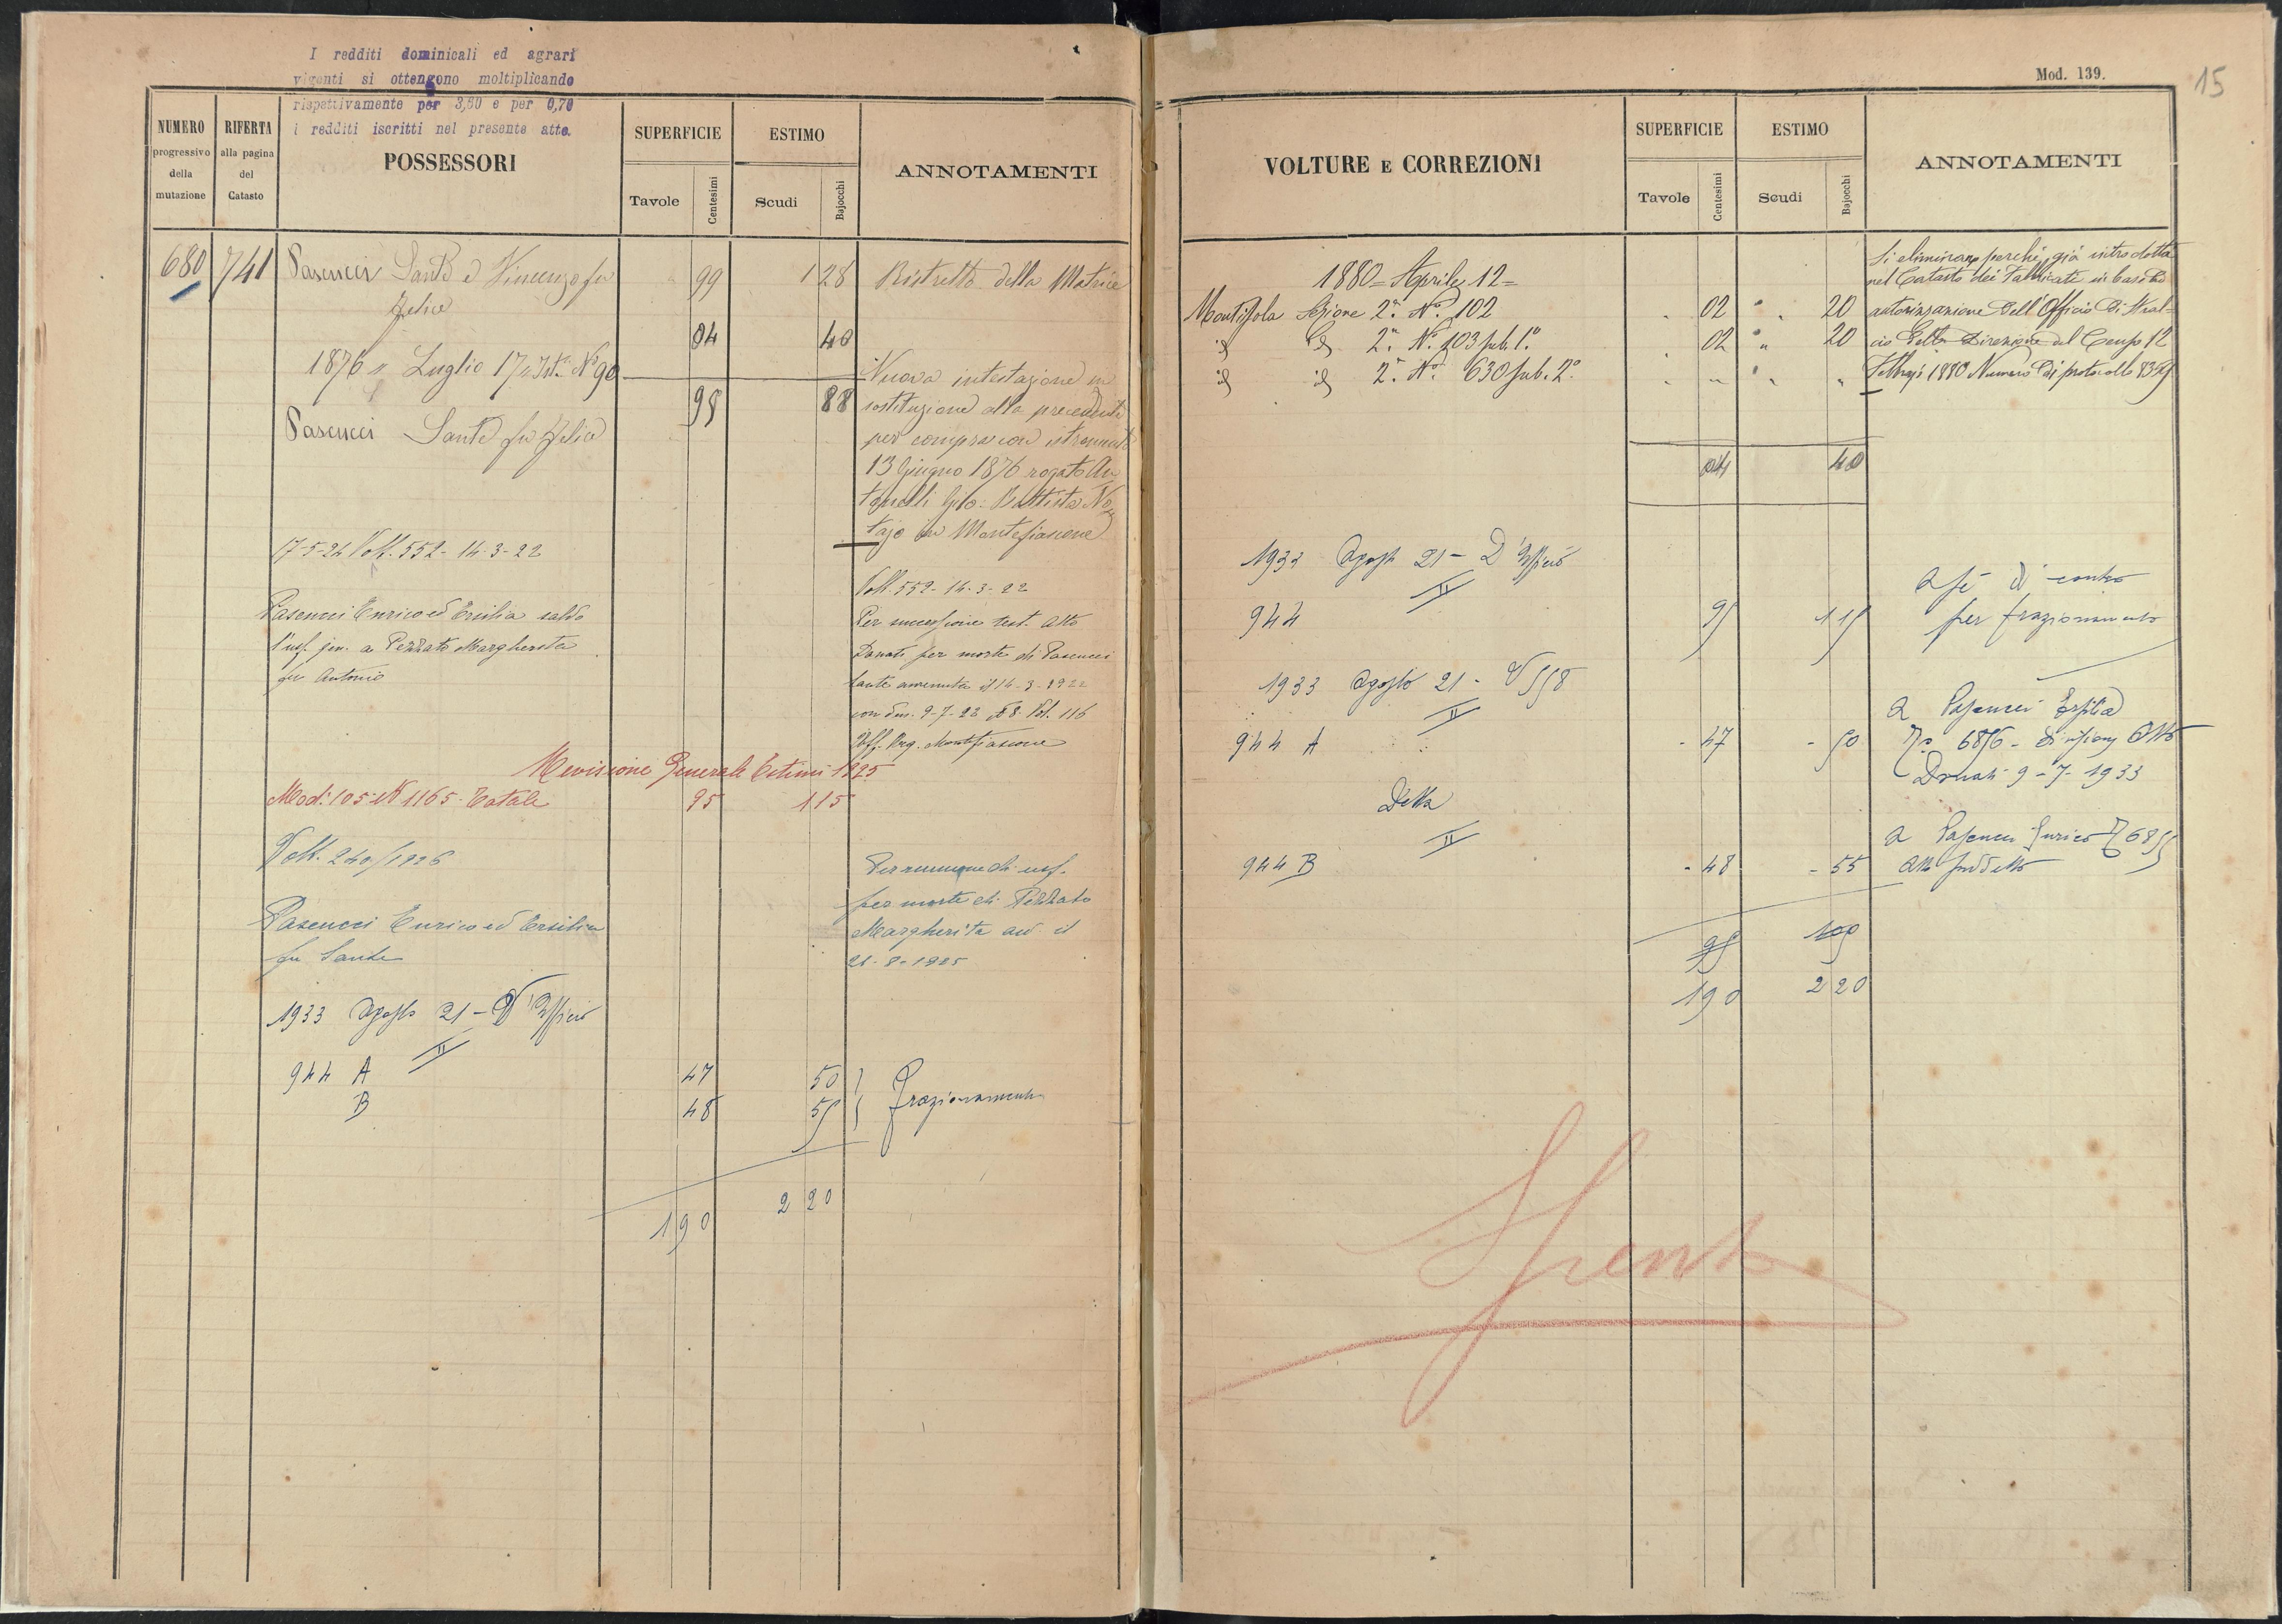 I redditi dominicali ed agrari
vigenti si ottengono moltiplicando
rispettivamente per 3,80 e per 0,70
i redditi iscritti nel presente atto.
NUMERO
progressivo
della
mutazione
RIFERTA
alla pagina
del
Catasto
POSSESSORI
SUPERFICIE
Tavole
Centesimi
ESTIMO
Scudi
Bajocchi
ANNOTAMENTI
680 741 Pascucci Sante e Vincenzo fu 99 1 28 Ristretto della Matrice
Felice
04 40
1876 " Luglio 17 " Ist. N° 90
95 88
Nuova intestazione in
sostituzione alla precedente
per compra con istromento
13 Giugno 1876 rogato An
tonelli Gio. Battista No
tajo in Montefiascone
Pascucci Sante fu Felice
17-5-24 Volt. 552 - 14-3-22
Volt. 552 - 14-3-22
Pascucci Enrico ed Ersilia salvo
l'usf. a Pezzato Margherita
fu Antonio
Per successione test. atto
Donati per morte di Pascucci
Sante avvenuta il 14-3-1922
con den. 9-7-23 N 8. Vol. 116
Uff. Reg. Montefiascone
Revisione Generale Estimi 1925
Mod. 105 N 1165 - Totale 95 115
Volt. 240/1926
Per riunione di usf.
per morte di Pezzato
Margherita avv il
21-8-1925
Pascucci Enrico ed Ersilia
fu Sante
1933 Agosto 21 - D'Ufficio
944 A 47 50
B 48 55 Frazionamento
190 2 20
Mod. 139.
15
VOLTURE E CORREZIONI
SUPERFICIE
Tavole
Centesimi
ESTIMO
Scudi
Bajocchi
ANNOTAMENTI
1880 = Aprile 12 =
Si eliminano perchè già introdotta
nel Catasto dei Fabbricati in base ad
autorizzazione dell'Officio di Stral-
cio della Direzione del Censo 12
Febbrajo 1880 Numero di protocollo
Sezione 2ª N° 102 02 20
id id 2ª N° 103 sub. 1° 02 20
id id 2ª N° 630 sub. 2°
04 40
1933 Agosto 21 - D'Ufficio
944 95 115
a sè di contro
per frazionamento
1933 Agosto 21 -
944 A 47 50
a Pascucci Ersilia
6856 - Divisione Atto
Donati 9-7-1933
Detta
944 B 48 55
a Pascucci Enrico
atto suddetto
95 105
190 2 20
Spento